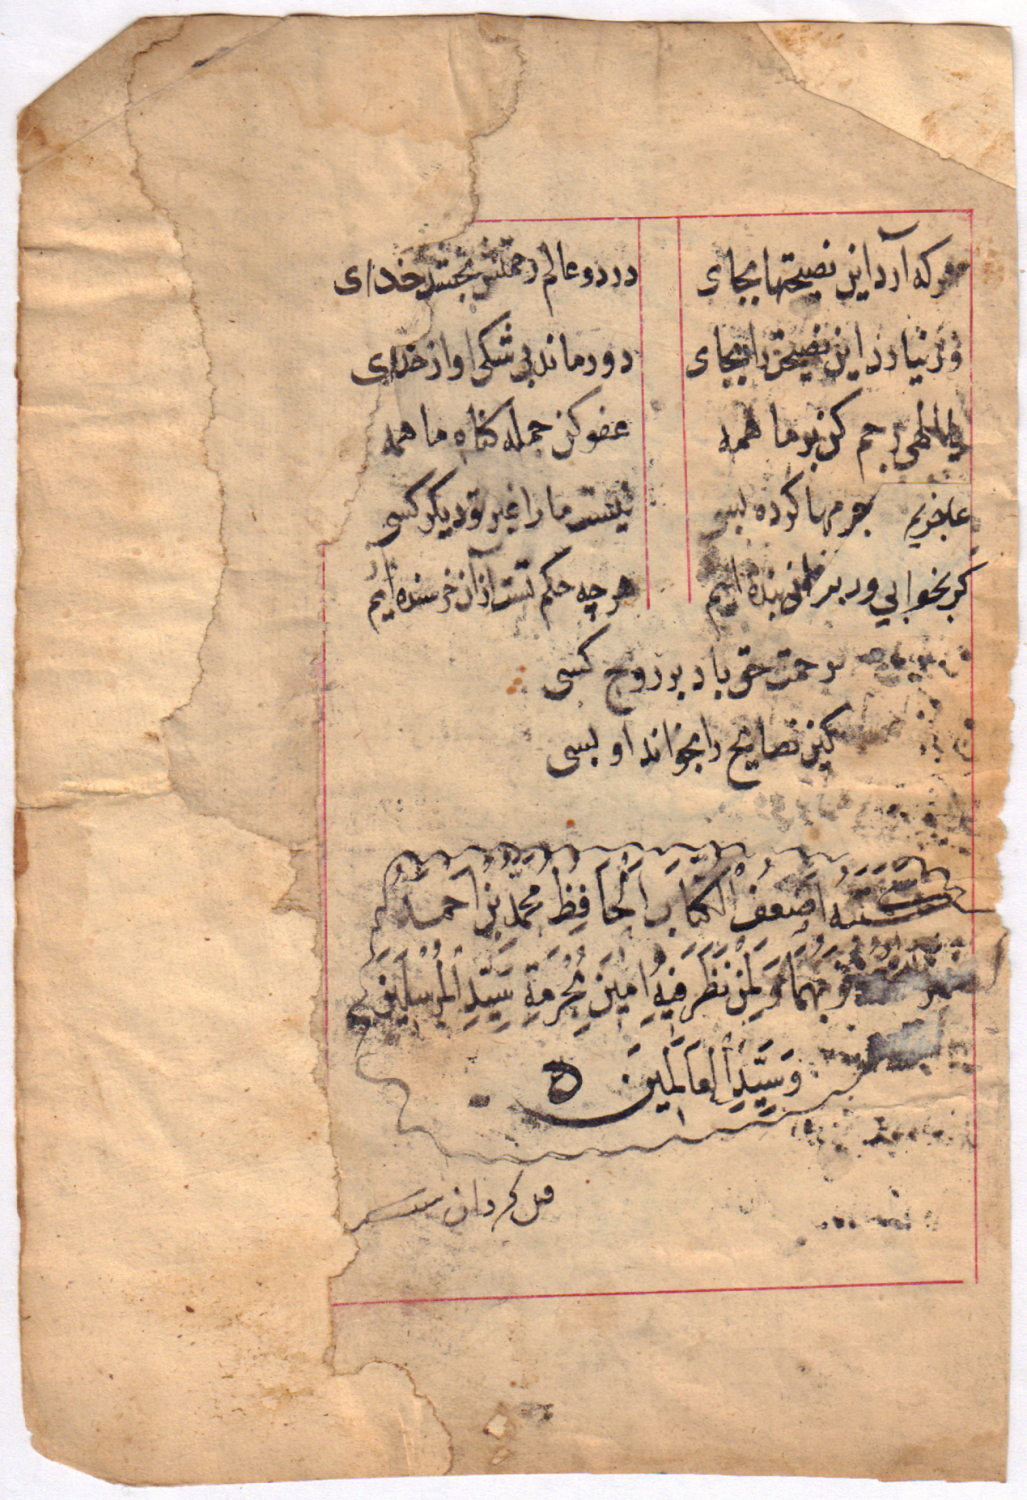 هرکه آرد این نصیحتها بجای در دو عالم رحمتش بخشد خدای
ور نیارد این نصیحت را بجای دور ماند بی شکی او از خدای
یا الهی رحم کن بر ما همه عفو کن جمله کناه ما همه
عاجزیم جرمها کرده بسی نیست ما را غیر تو دیکر کسی
کر بخوانی ور برانی بنده ایم هر چه حکم تست از آن خرسنده ایم
رحمت حق باد بر روح کسی
کین نصایح را بخواند او بسی
کَتَبَهُ اَضْعَفُ الْکُتَّابِ الْحَافِظْ مُحَمَّدْ بِنْ احمد
وَلِمَنْ نَظَرَ فِیهِ اٰمِینَ بِحُرْمَةِ سَیِّدِ الْمُرْسَلِینَ
وَسَیِّدِ الْعَالَمِینَ ه